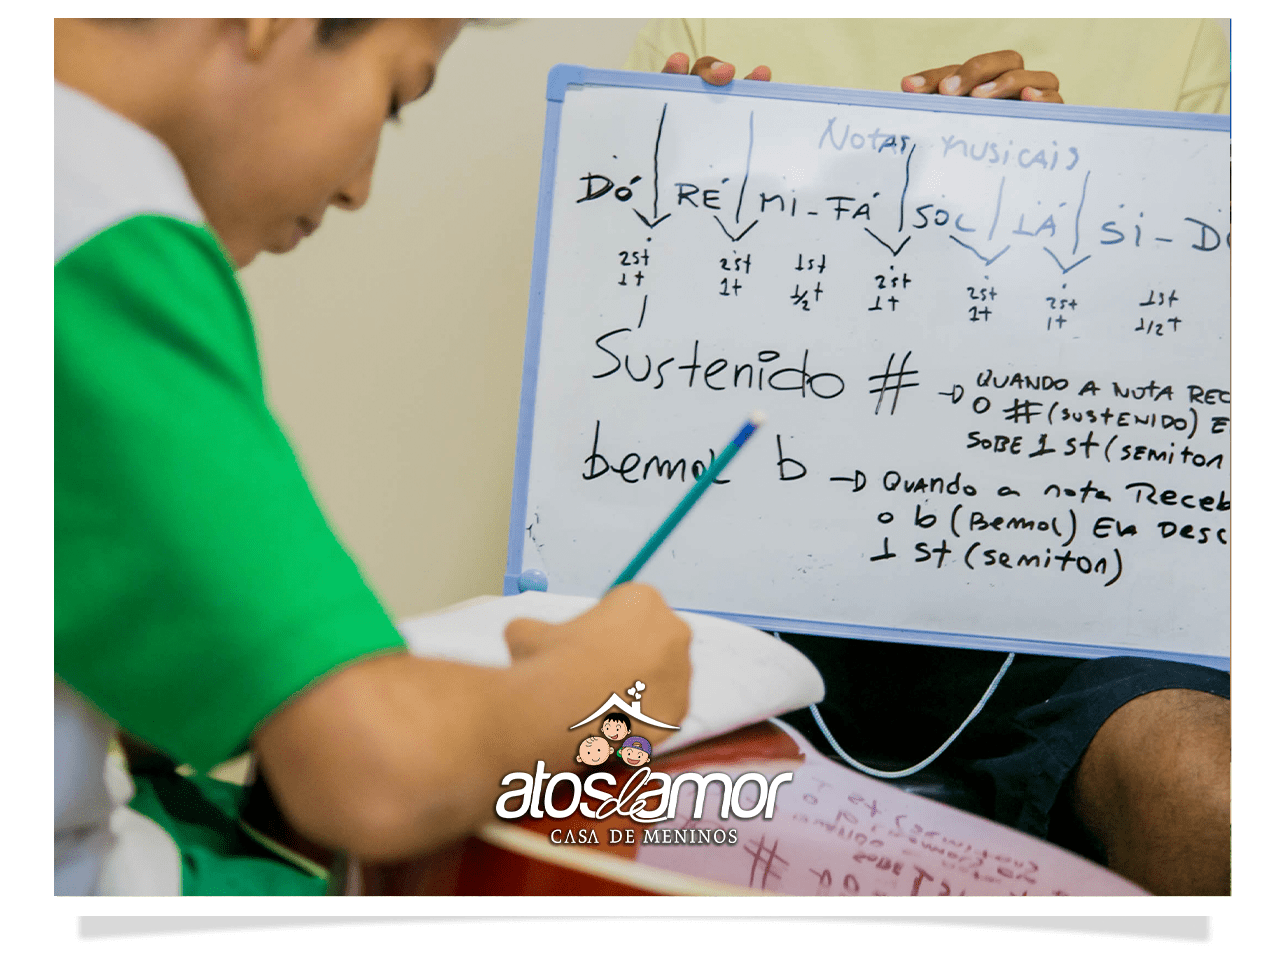 Notas musicais
DÓ RÉ mi - FÁ SOL LÁ Si - DÓ
2st 2st 1st 2st 2st 2st 1st
1t 1t 1/2t 1t 1t 1t 1/2t
Sustenido # → QUANDO A NOTA REC
O # (SUSTENIDO) E
SOBE 1 st (SEMITON
bemol b → Quando a nota Receb
o b (Bemol) Ela Desc
1 st (semiton)
atos de amor
CASA DE MENINOS